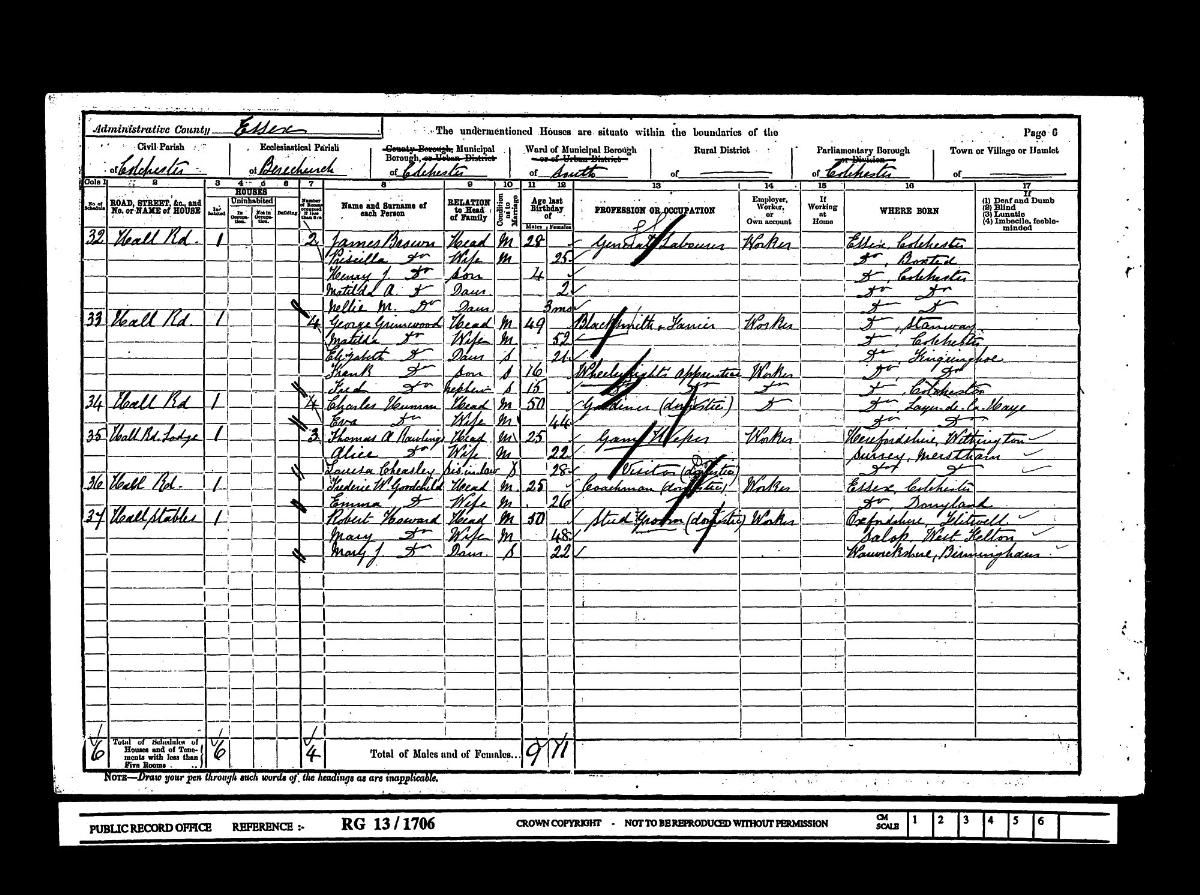 Administrative County Essex
The undermentioned Houses are situate within the boundaries of the
Page 6
Civil Parish of Colchester
Ecclesiastical Parish of Berechurch
County Borough, Municipal Borough, or Urban District of Colchester
Ward of Municipal Borough or of Urban District of South
Rural District of
Parliamentary Borough or Division of Colchester
Town or Village or Hamlet of
Cols 1 2 3 4 5 6 7 8 9 10 11 12 13 14 15 16 17
No. of Schedule
ROAD, STREET, &c., and No. or NAME of HOUSE
HOUSES
Inhabited
Uninhabited
In Occupation.
Not in Occupation.
Building
Number of Rooms occupied if less than five
Name and Surname of each Person
RELATION to Head of Family
Condition as to Marriage
Age last Birthday of
Males Females
PROFESSION OR OCCUPATION
Employer, Worker, or Own account
If Working at Home
WHERE BORN
(1) Deaf and Dumb
(2) Blind
(3) Lunatic
(4) Imbecile, feeble-minded
32 Hall Rd. 1 2 James Brown Head M 28 General Labourer Worker Essex Colchester
Priscilla Do Wife M 25 Do Boxted
Henry J. Do Son 4 Do Colchester
Matilda A. Do Daur 2 Do Do
Nellie M. Do Daur 3 mo Do Do
33 Hall Rd. 1 4 George Grimwood Head M 49 Blacksmith & Farrier Worker Do Stanway
Matilda Do Wife M 52 Do Colchester
Elizabeth Do Daur S 21 Do Fingringhoe
Frank Do Son S 16 Wheelwrights apprentice Worker Do Do
Fred Do Nephew S 15 Do Do Do Do Colchester
34 Hall Rd 1 4 Charles Head M 50 Gardiner (domestic) Do Do Layer-de-la-Haye
Eva Do Wife M 44 Do Do
35 Hall Rd. Lodge 1 3 Thomas A Rawlings Head M 25 Game Keeper Worker Herefordshire, Withington
Alice Do Wife M 22 Surrey, Merstham
Louisa Cheasley Sis in law S 28 Visitor (domestic) Do Do
36 Hall Rd. 1 Frederic W. Goodchild Head M 25 Coachman (domestic) Worker Essex Colchester
Emma Do Wife M 26 Do Donyland
37 Hall Stables 1 Robert Howard Head M 50 Stud Groom (domestic) Worker Oxfordshire, Fritwell
Mary Do Wife M 48 Salop, West Felton
Mary J. Do Daur S 22 Warwickshire, Birmingham
6 Total of Schedules of Houses and of Tenements with less than Five Rooms 6 4 Total of Males and of Females... 9 11
NOTE—Draw your pen through such words of the headings as are inapplicable.
PUBLIC RECORD OFFICE REFERENCE :- RG 13/1706 CROWN COPYRIGHT - NOT TO BE REPRODUCED WITHOUT PERMISSION CM SCALE 1 2 3 4 5 6